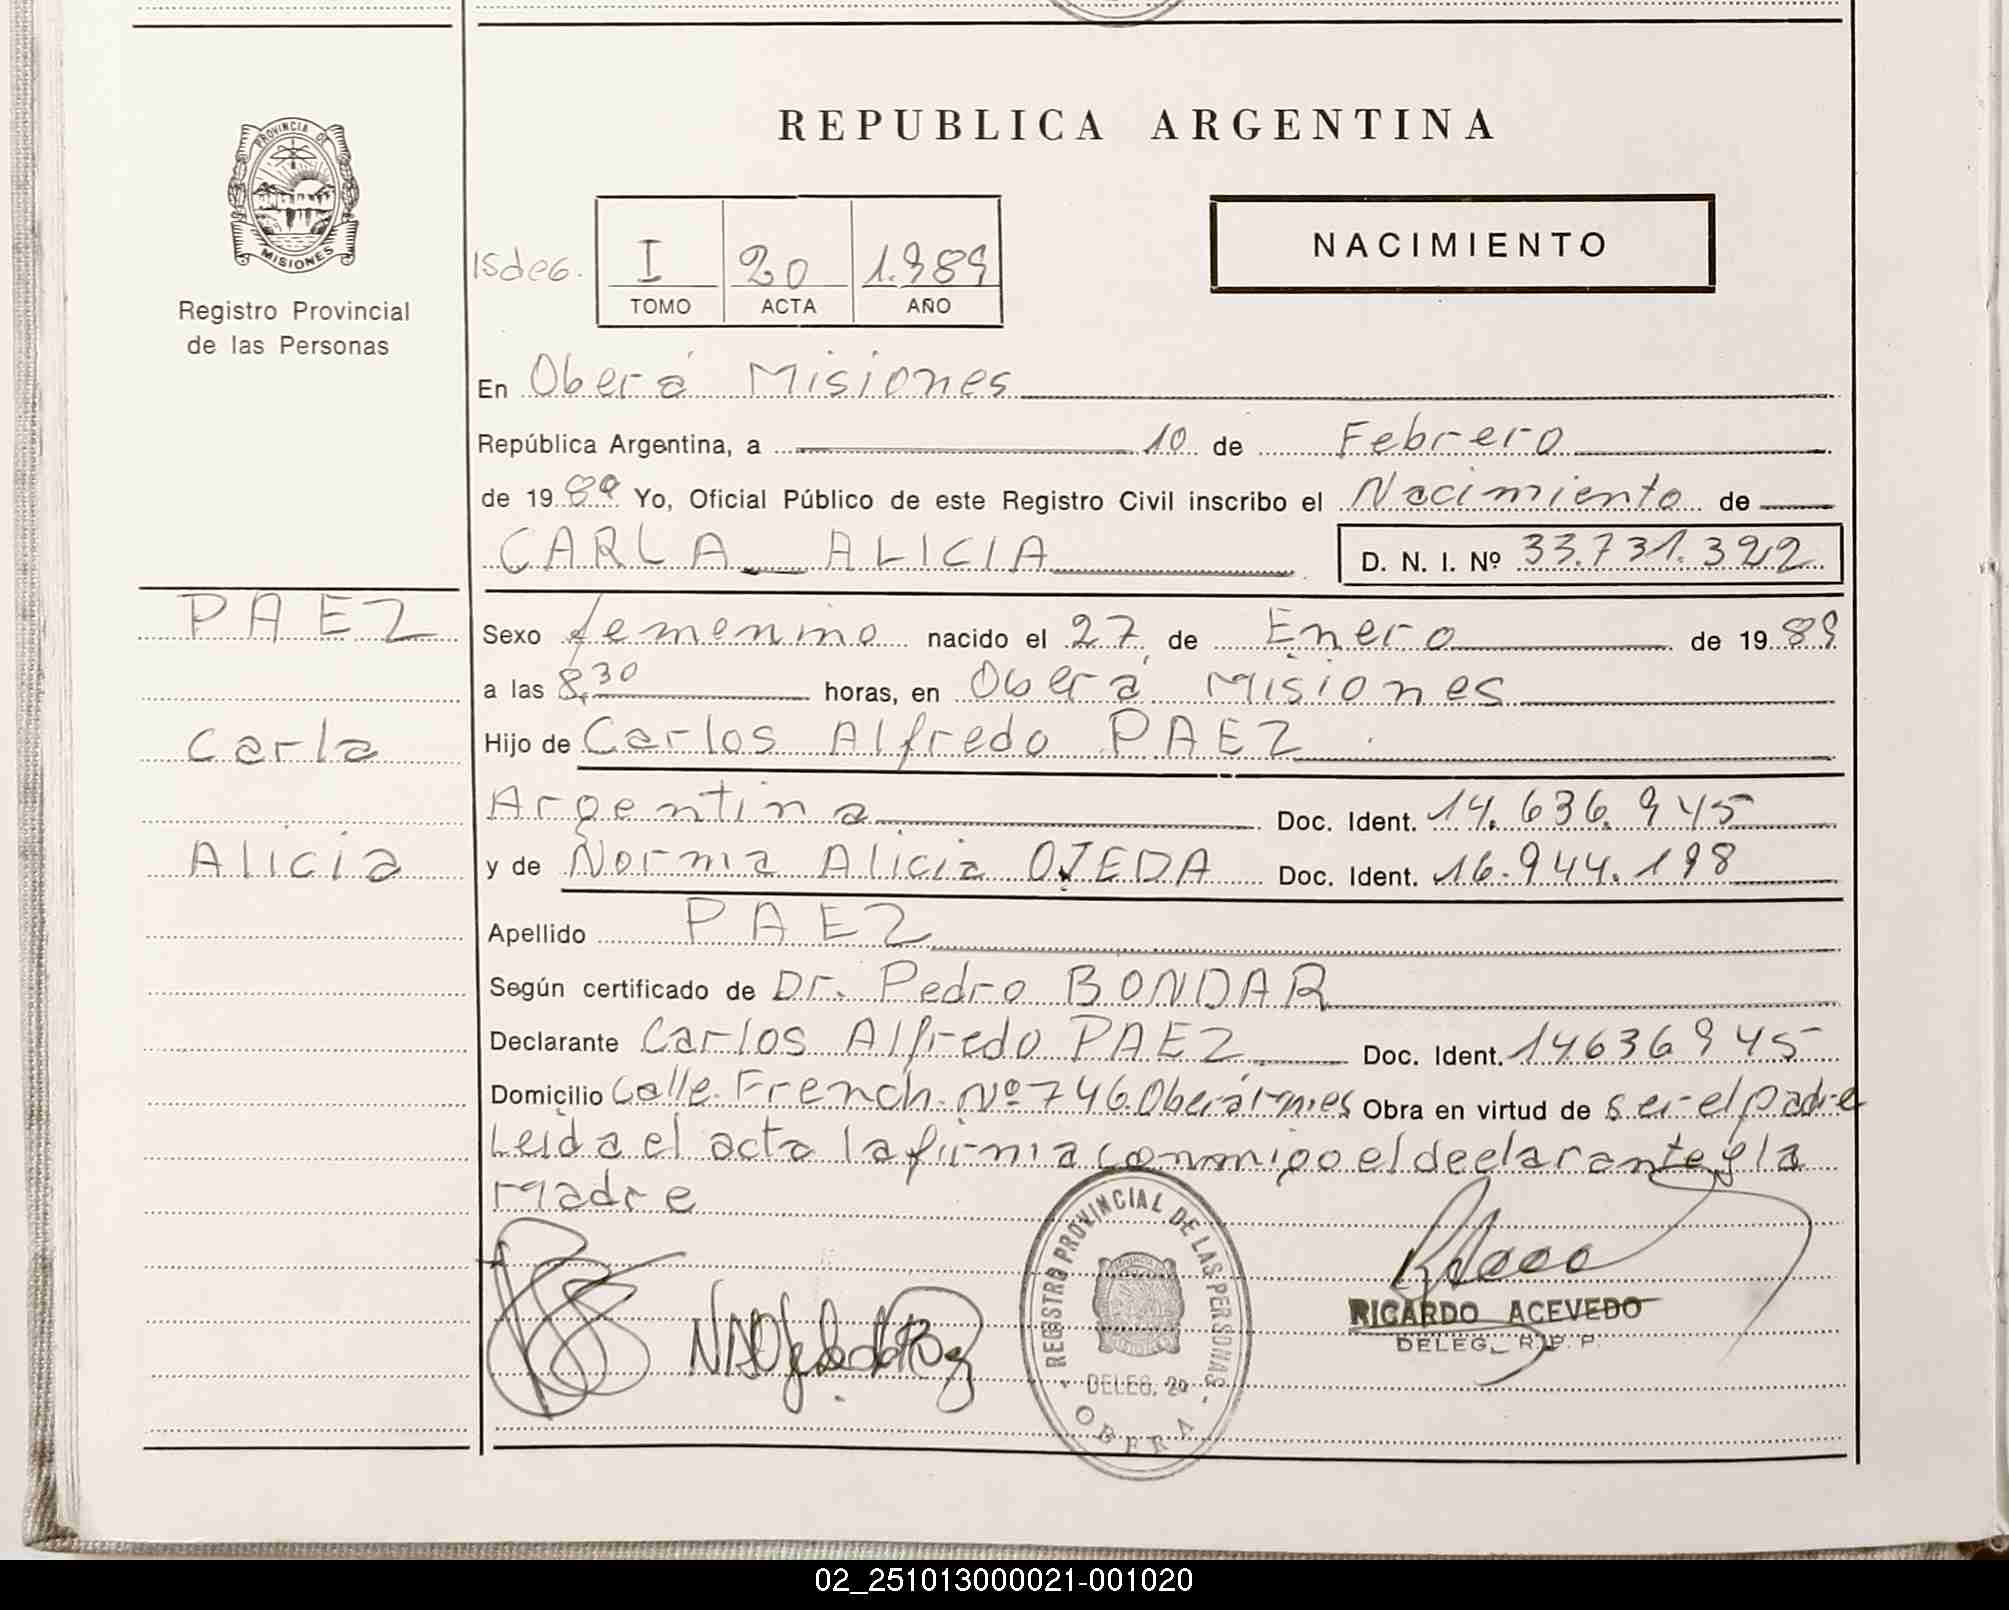 REPUBLICA ARGENTINA
PROVINCIA DE
MISIONES
Registro Provincial
de las Personas
I 20 1.989
TOMO ACTA AÑO
NACIMIENTO
En Oberá Misiones
República Argentina, a 10 de Febrero
de 1989 Yo, Oficial Público de este Registro Civil inscribo el Nacimiento de
CARLA ALICIA D. N. I. Nº 33.731.322
PAEZ
Carla
Alicia
Sexo femenino nacido el 27 de Enero de 1989
a las 8,30 horas, en Oberá Misiones
Hijo de Carlos Alfredo PAEZ
Argentina Doc. Ident. 14.636.945
y de Norma Alicia OJEDA Doc. Ident. 16.944.198
Apellido PAEZ
Según certificado de Dr. Pedro BONDAR
Declarante Carlos Alfredo PAEZ Doc. Ident. 14636945
Domicilio Calle French Nº 746 Oberá Obra en virtud de ser el padre
Leida el acta la firma conmigo el declarante y la
Madre
REGISTRO PROVINCIAL DE LAS PERSONAS
DELEG. 20
OBERA
RICARDO ACEVEDO
DELEG. R.P.P.
02_251013000021-001020